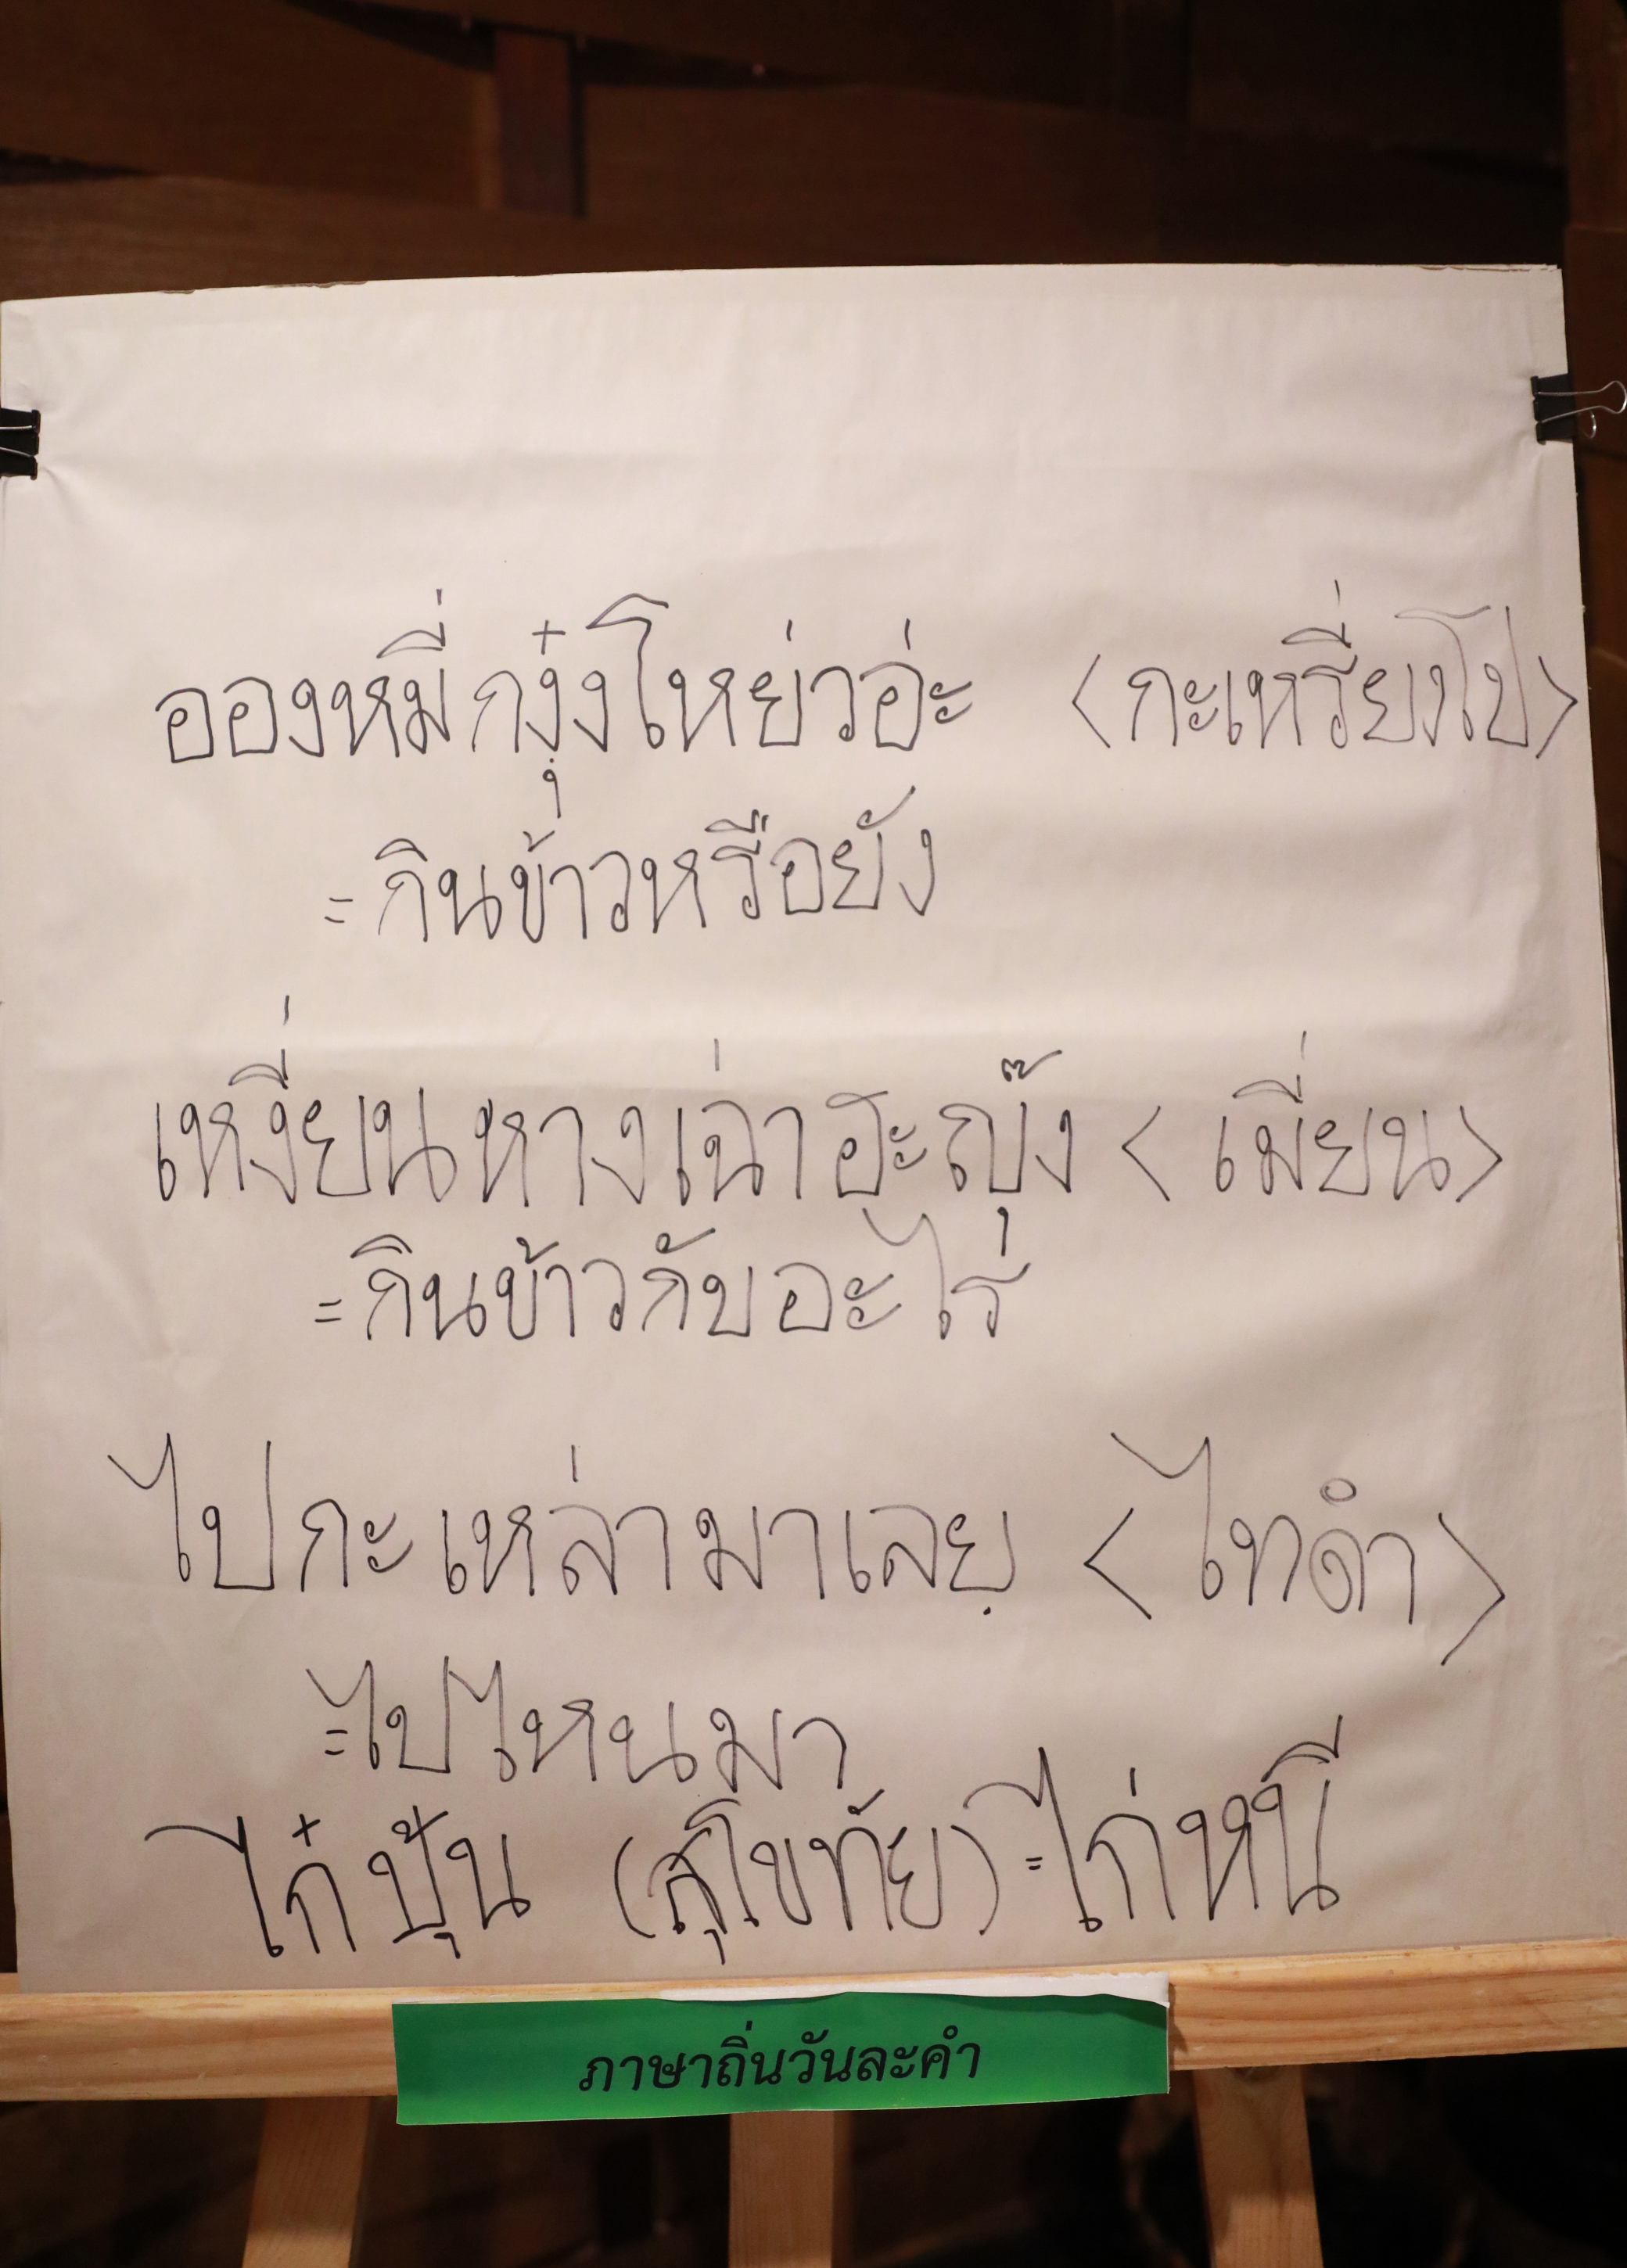 อองหมี่กงุ๋งโหย่วอ่ะ <กะเหรี่ยงโป>
=กินข้าวหรือยัง
เหงี่ยนหางเฉ่าฮะญุ๊ง <เมี่ยน>
=กินข้าวกับอะไร
ไปกะเหล่ามาเลยฺ <ไทดำ>
=ไปไหนมา
ไก๋ปุ้น (สุโขทัย)=ไก่หนี
ภาษาถิ่นวันละคำ